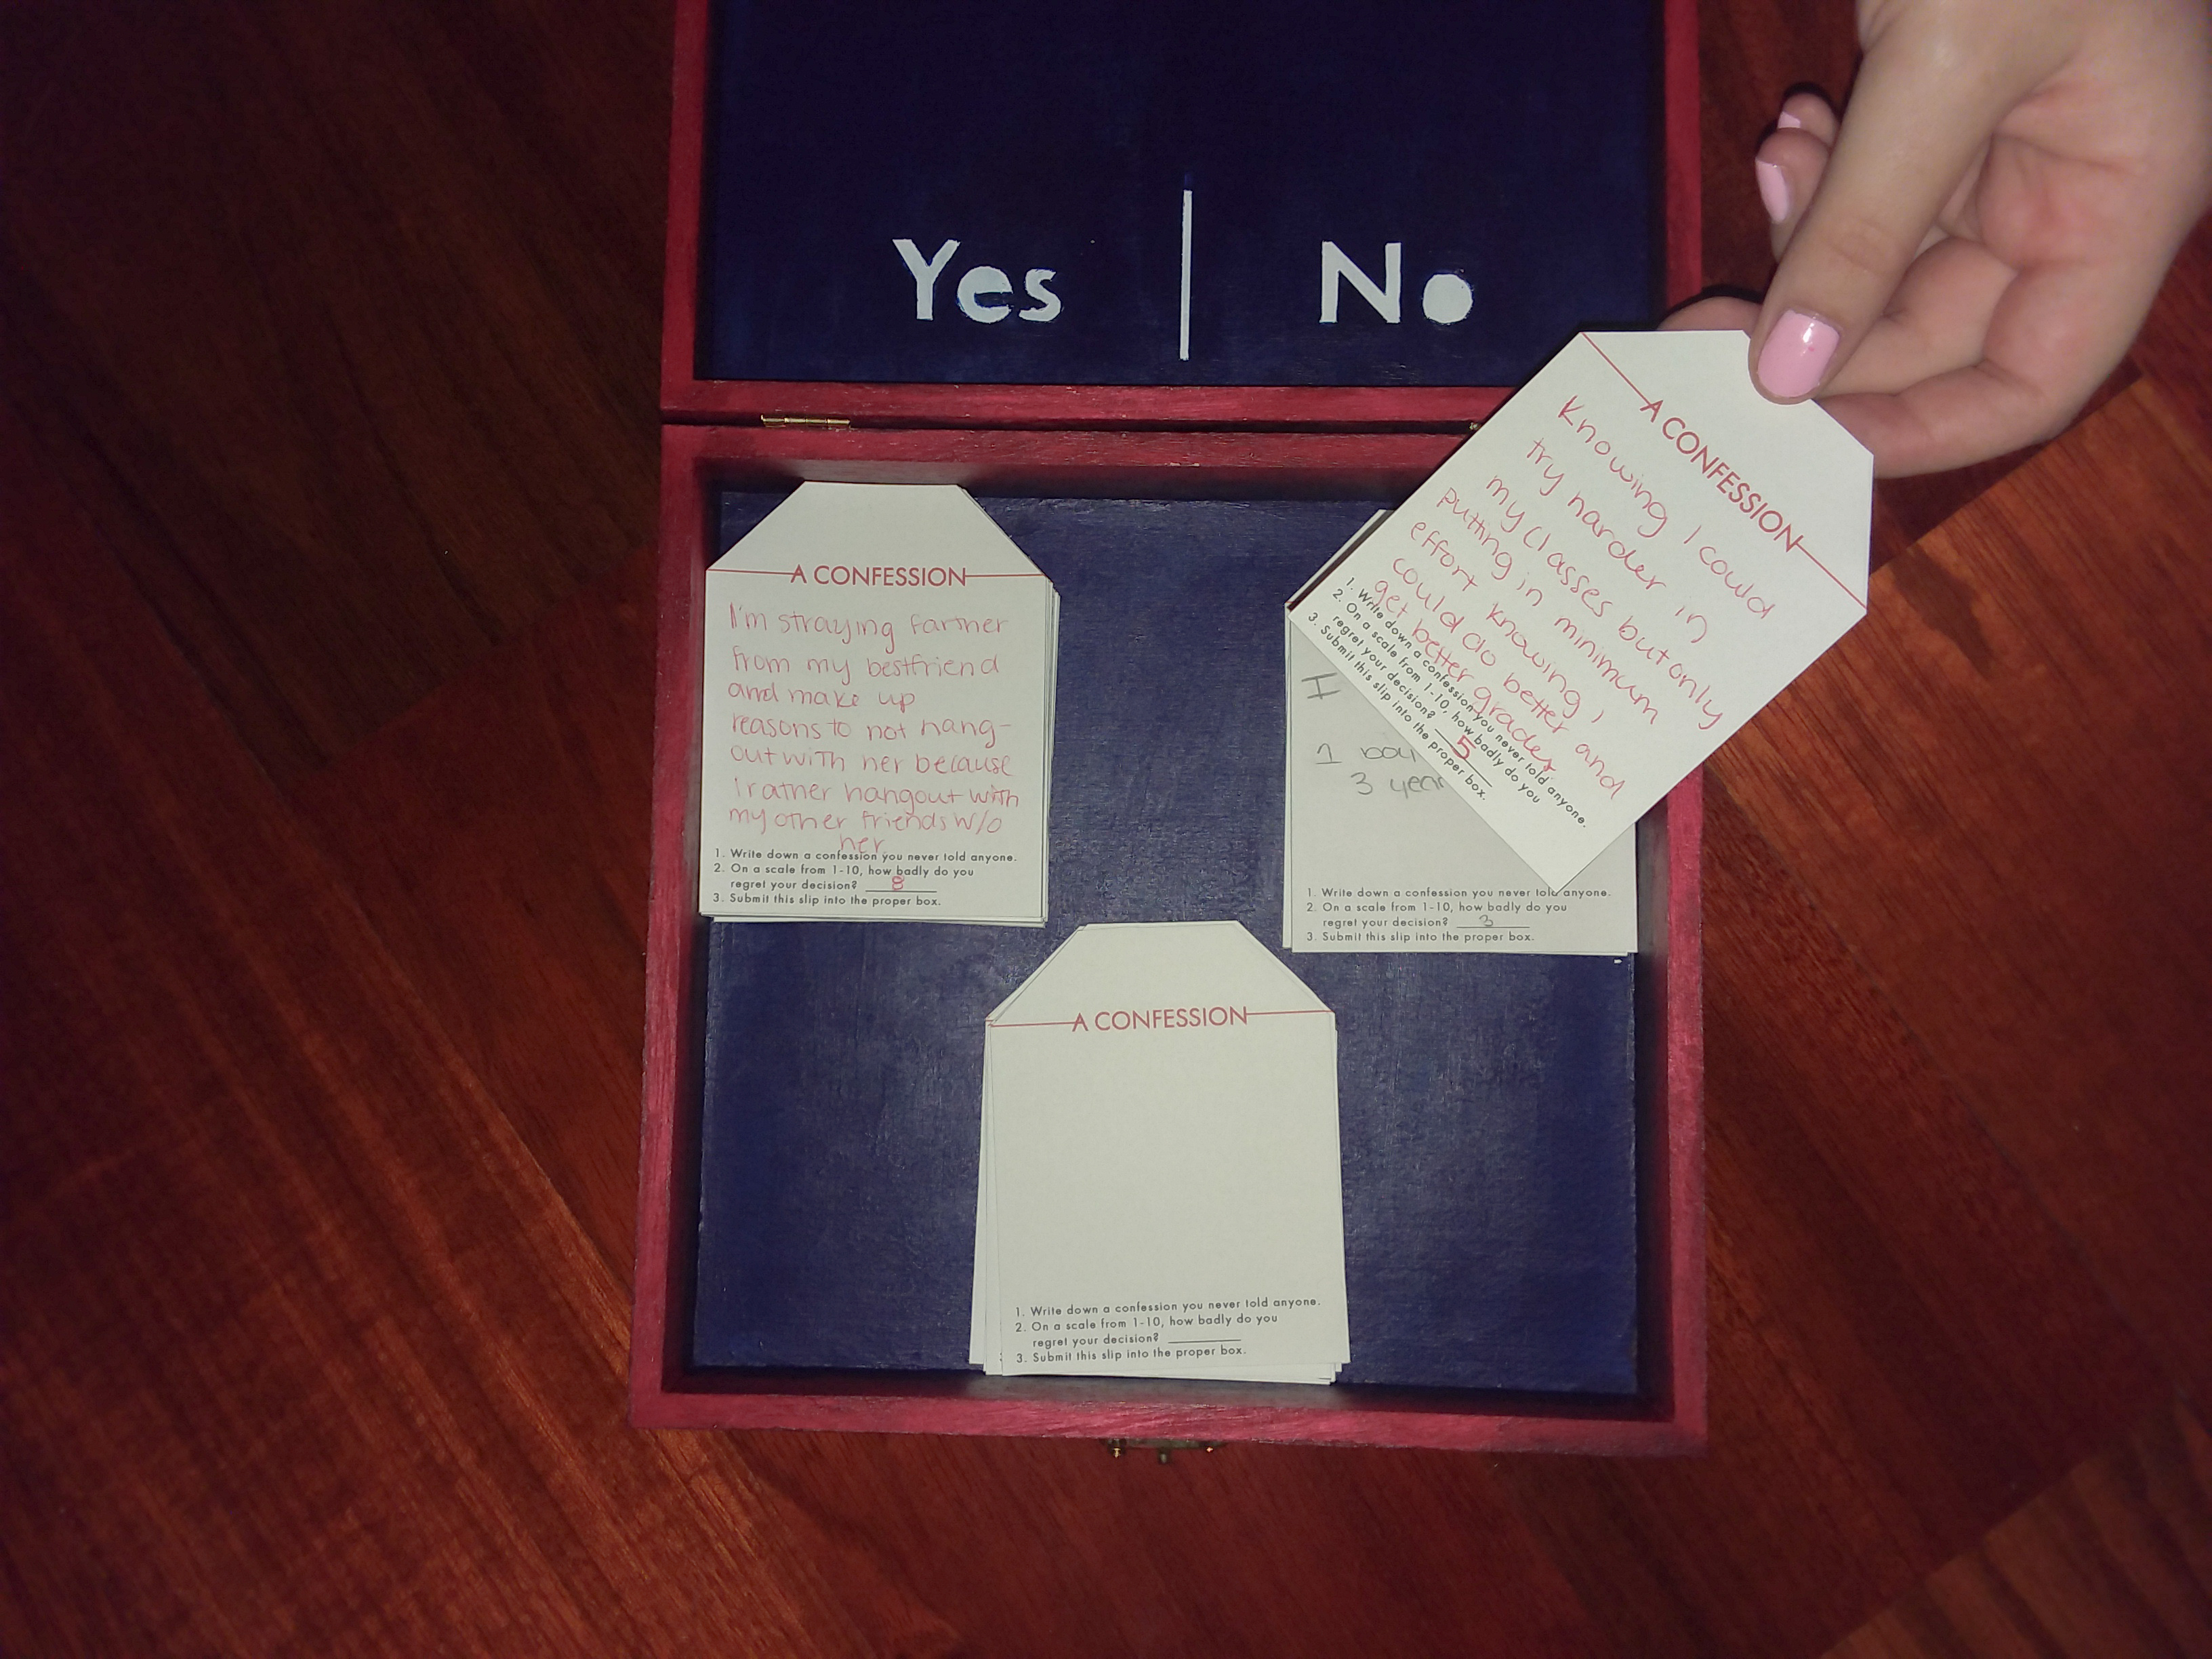 Yes | No
A CONFESSION
I'm straying farther
from my bestfriend
and make up
reasons to not hang-
out with her because
I rather hangout with
my other friends w/o
her
1. Write down a confession you never told anyone.
2. On a scale from 1-10, how badly do you
regret your decision? 8
3. Submit this slip into the proper box.
A CONFESSION
Knowing I could
try harder in
my classes but only
putting in minimum
effort knowing I
could do better and
get better grades
1. Write down a confession you never told anyone.
2. On a scale from 1-10, how badly do you
regret your decision? 5
3. Submit this slip into the proper box.
I
3
1. Write down a confession you never told anyone.
2. On a scale from 1-10, how badly do you
regret your decision? 3
3. Submit this slip into the proper box.
A CONFESSION
1. Write down a confession you never told anyone.
2. On a scale from 1-10, how badly do you
regret your decision?
3. Submit this slip into the proper box.